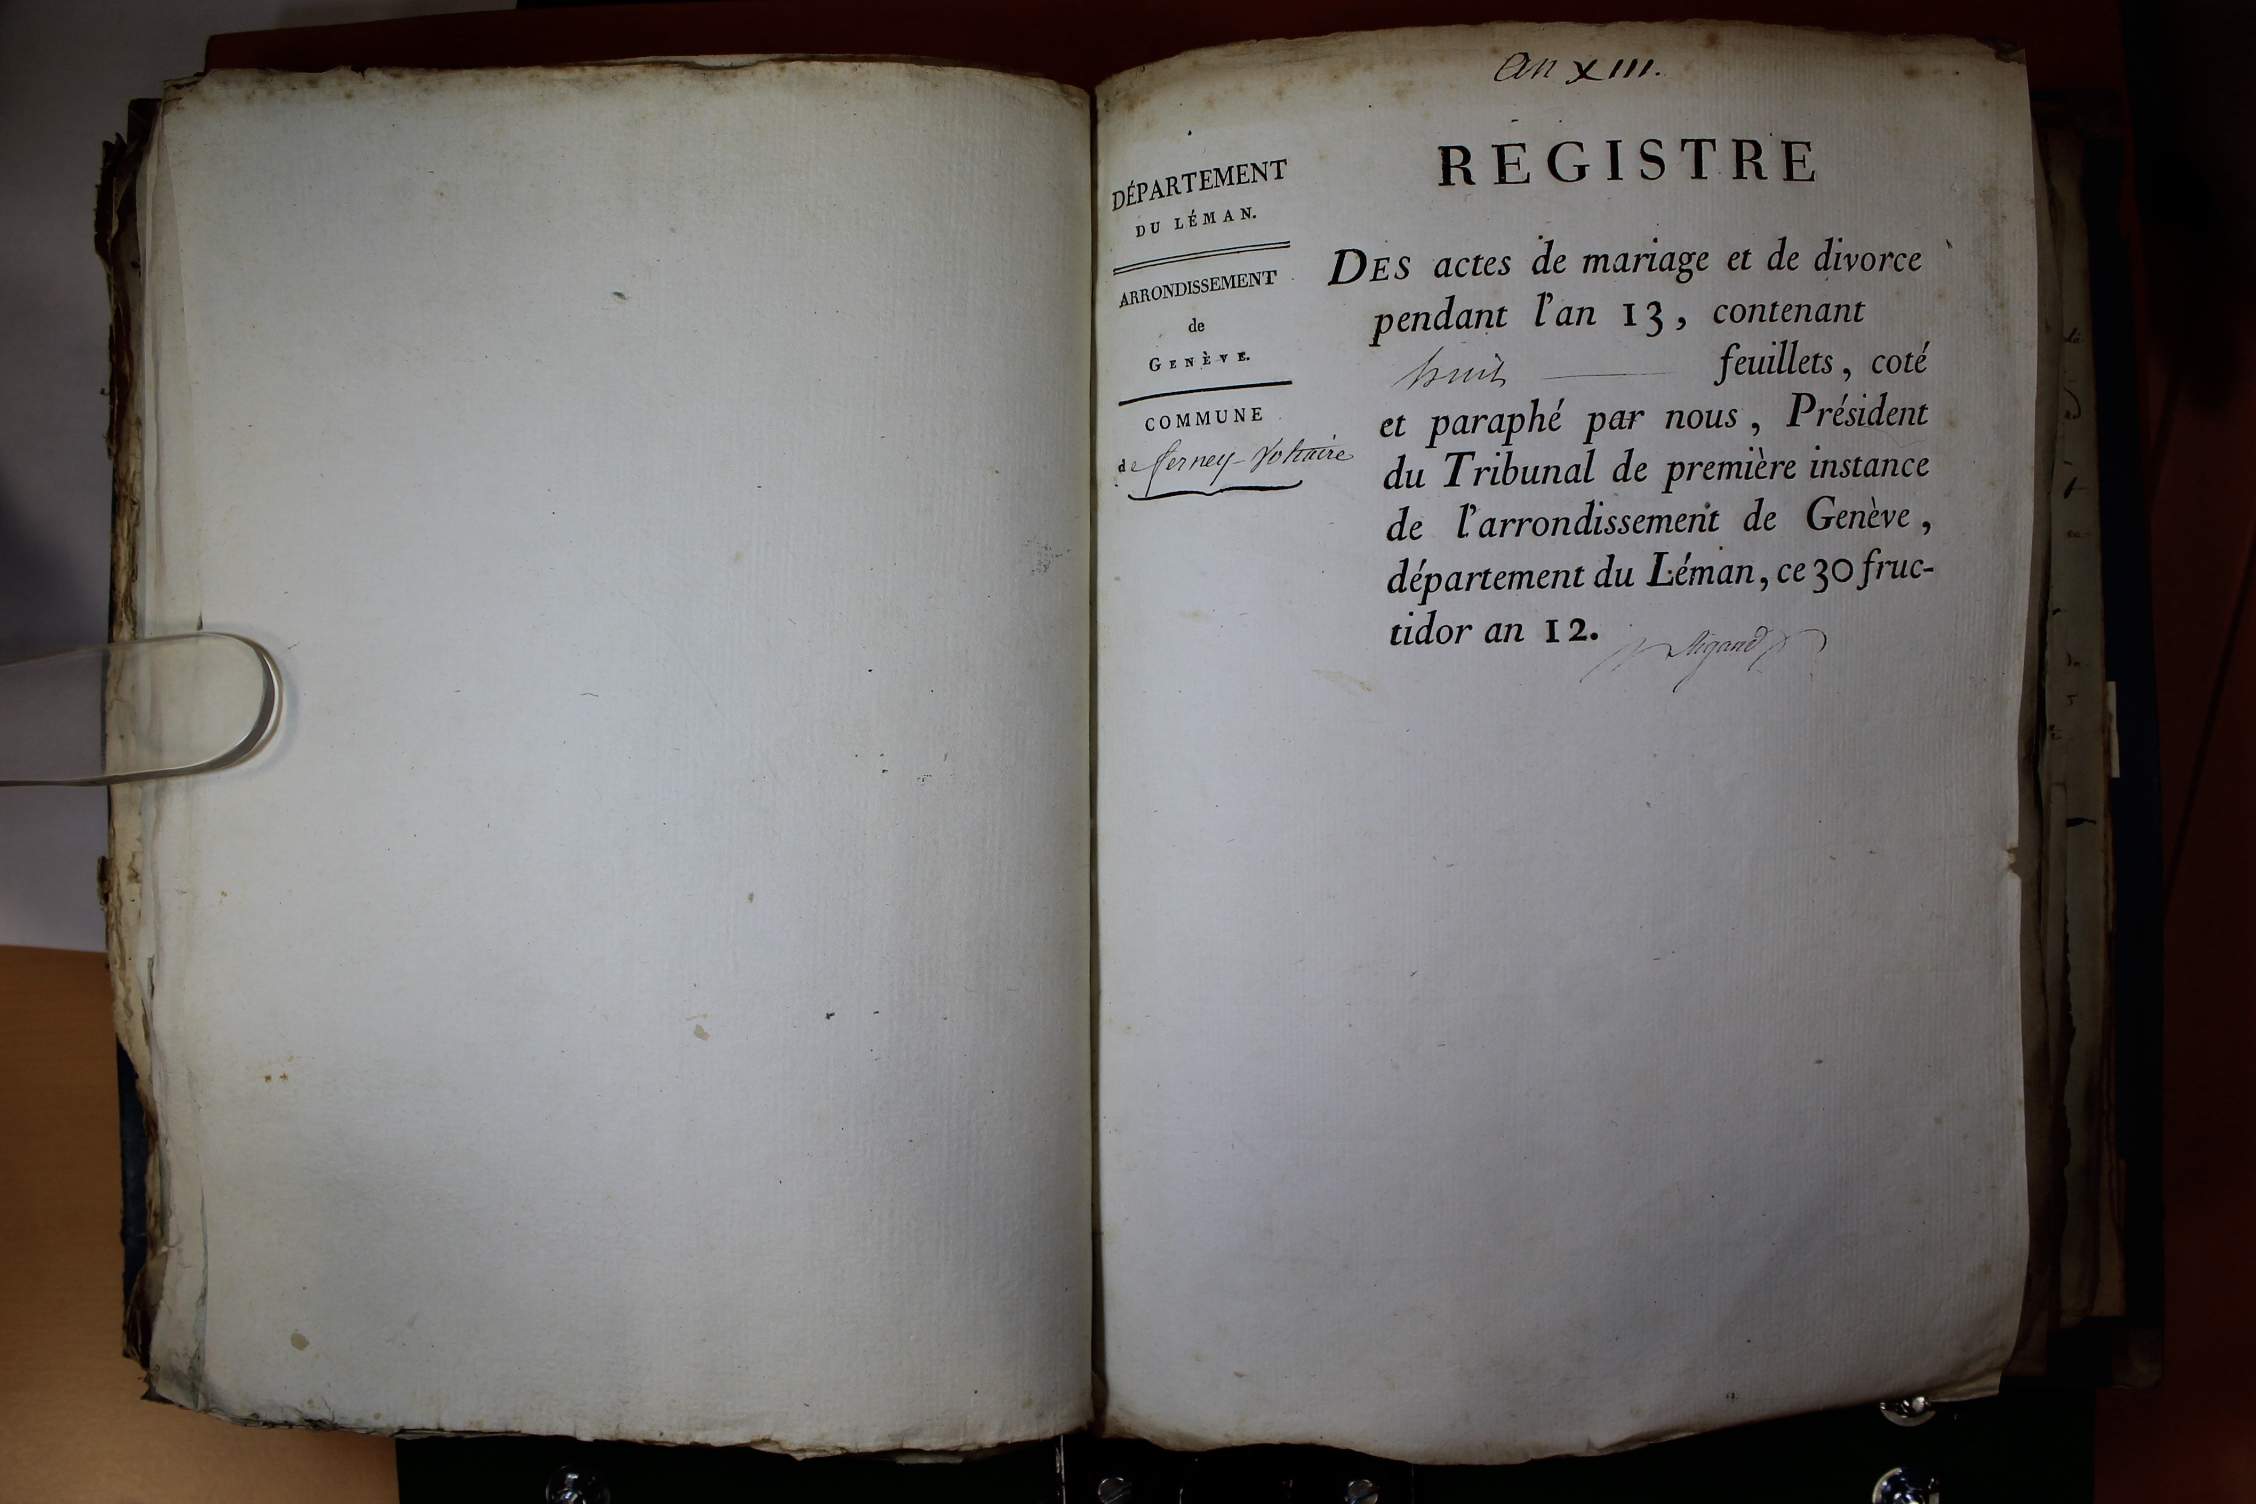 an XIII.
DÉPARTEMENT
DU LÉMAN.
ARRONDISSEMENT
de
GENÈVE.
COMMUNE
de ferney-Voltaire
REGISTRE
DES actes de mariage et de divorce
pendant l'an 13, contenant
huit feuillets, coté
et paraphé par nous, Président
du Tribunal de première instance
de l'arrondissement de Genève,
département du Léman, ce 30 fruc-
tidor an 12.